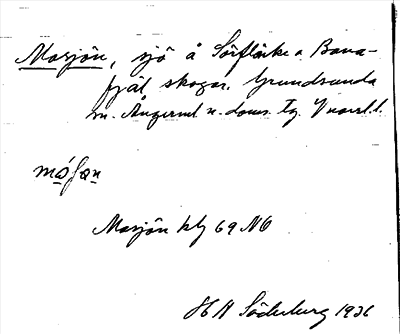 Masjön, sjö å Sörflärke o. Bana-
fjäl skogar. Grundsunda
sn. Ångerml. n. doms. Tg. Vnorrl. l.
måʃən
Masjön kbg 69 NO
H A Söderberg 1936